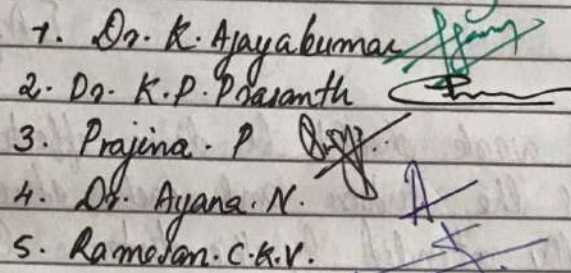 1. Dr. K. Ajayakumar
2. Dr. K. P. Prasanth
3. Prajina. P
4. Dr. Ayana. N.
5. Ramesan. C.K.V.